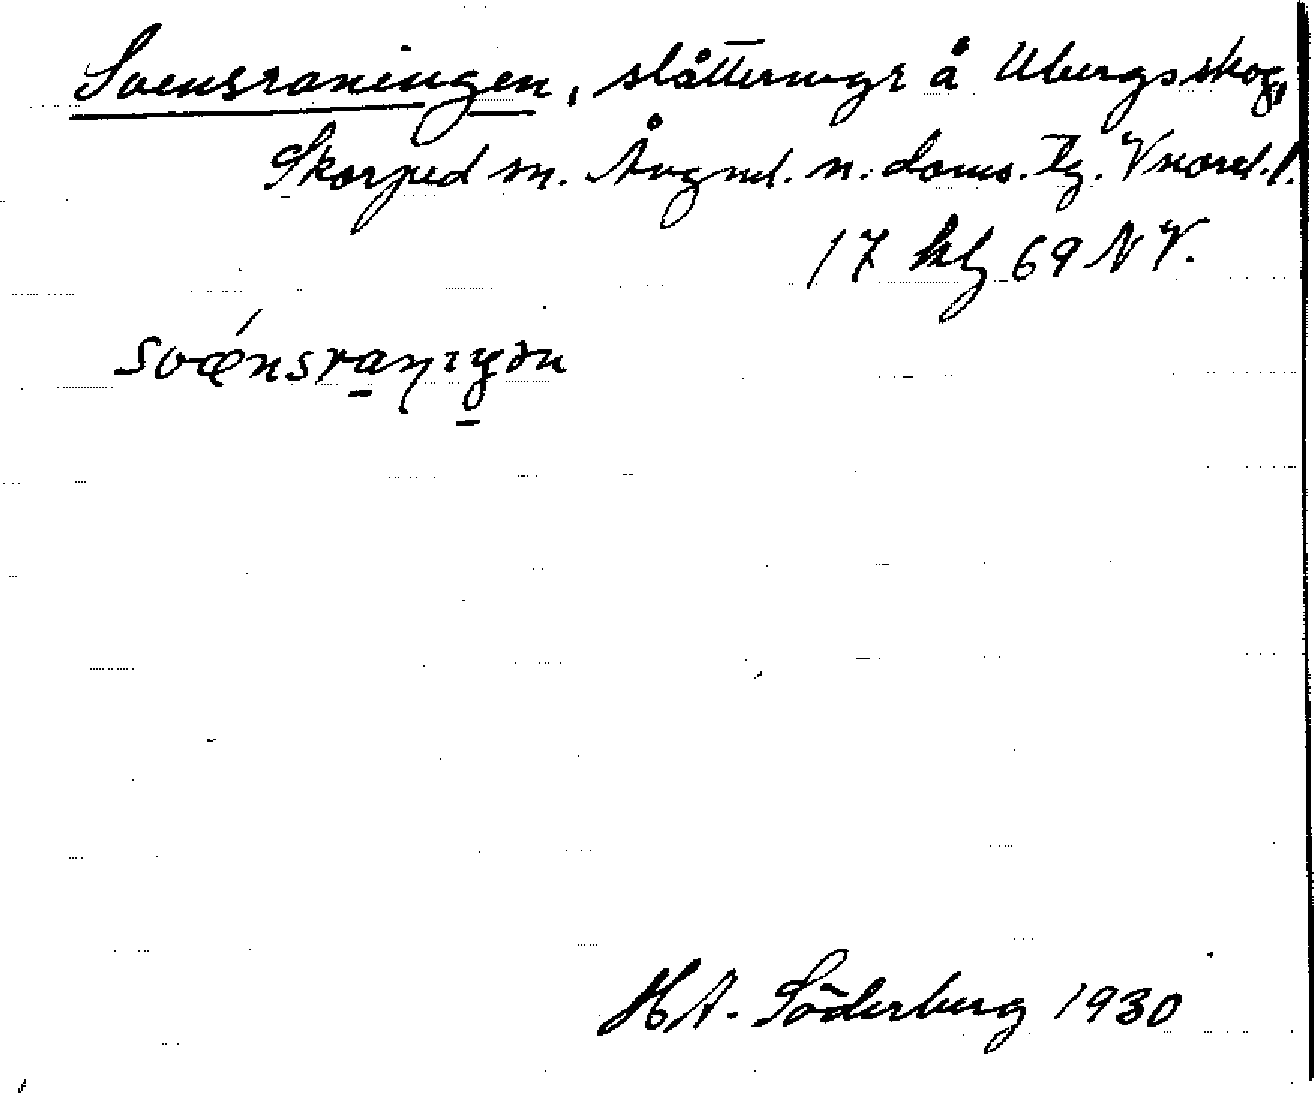 Svensraningen, slåttermyr å Ubergsskog,
Skorped sn. Ångml. n. doms. tg. Vnorrl. l.
17 bl 69 NV.
svǽnsranıŋən
H A. Söderberg 1930